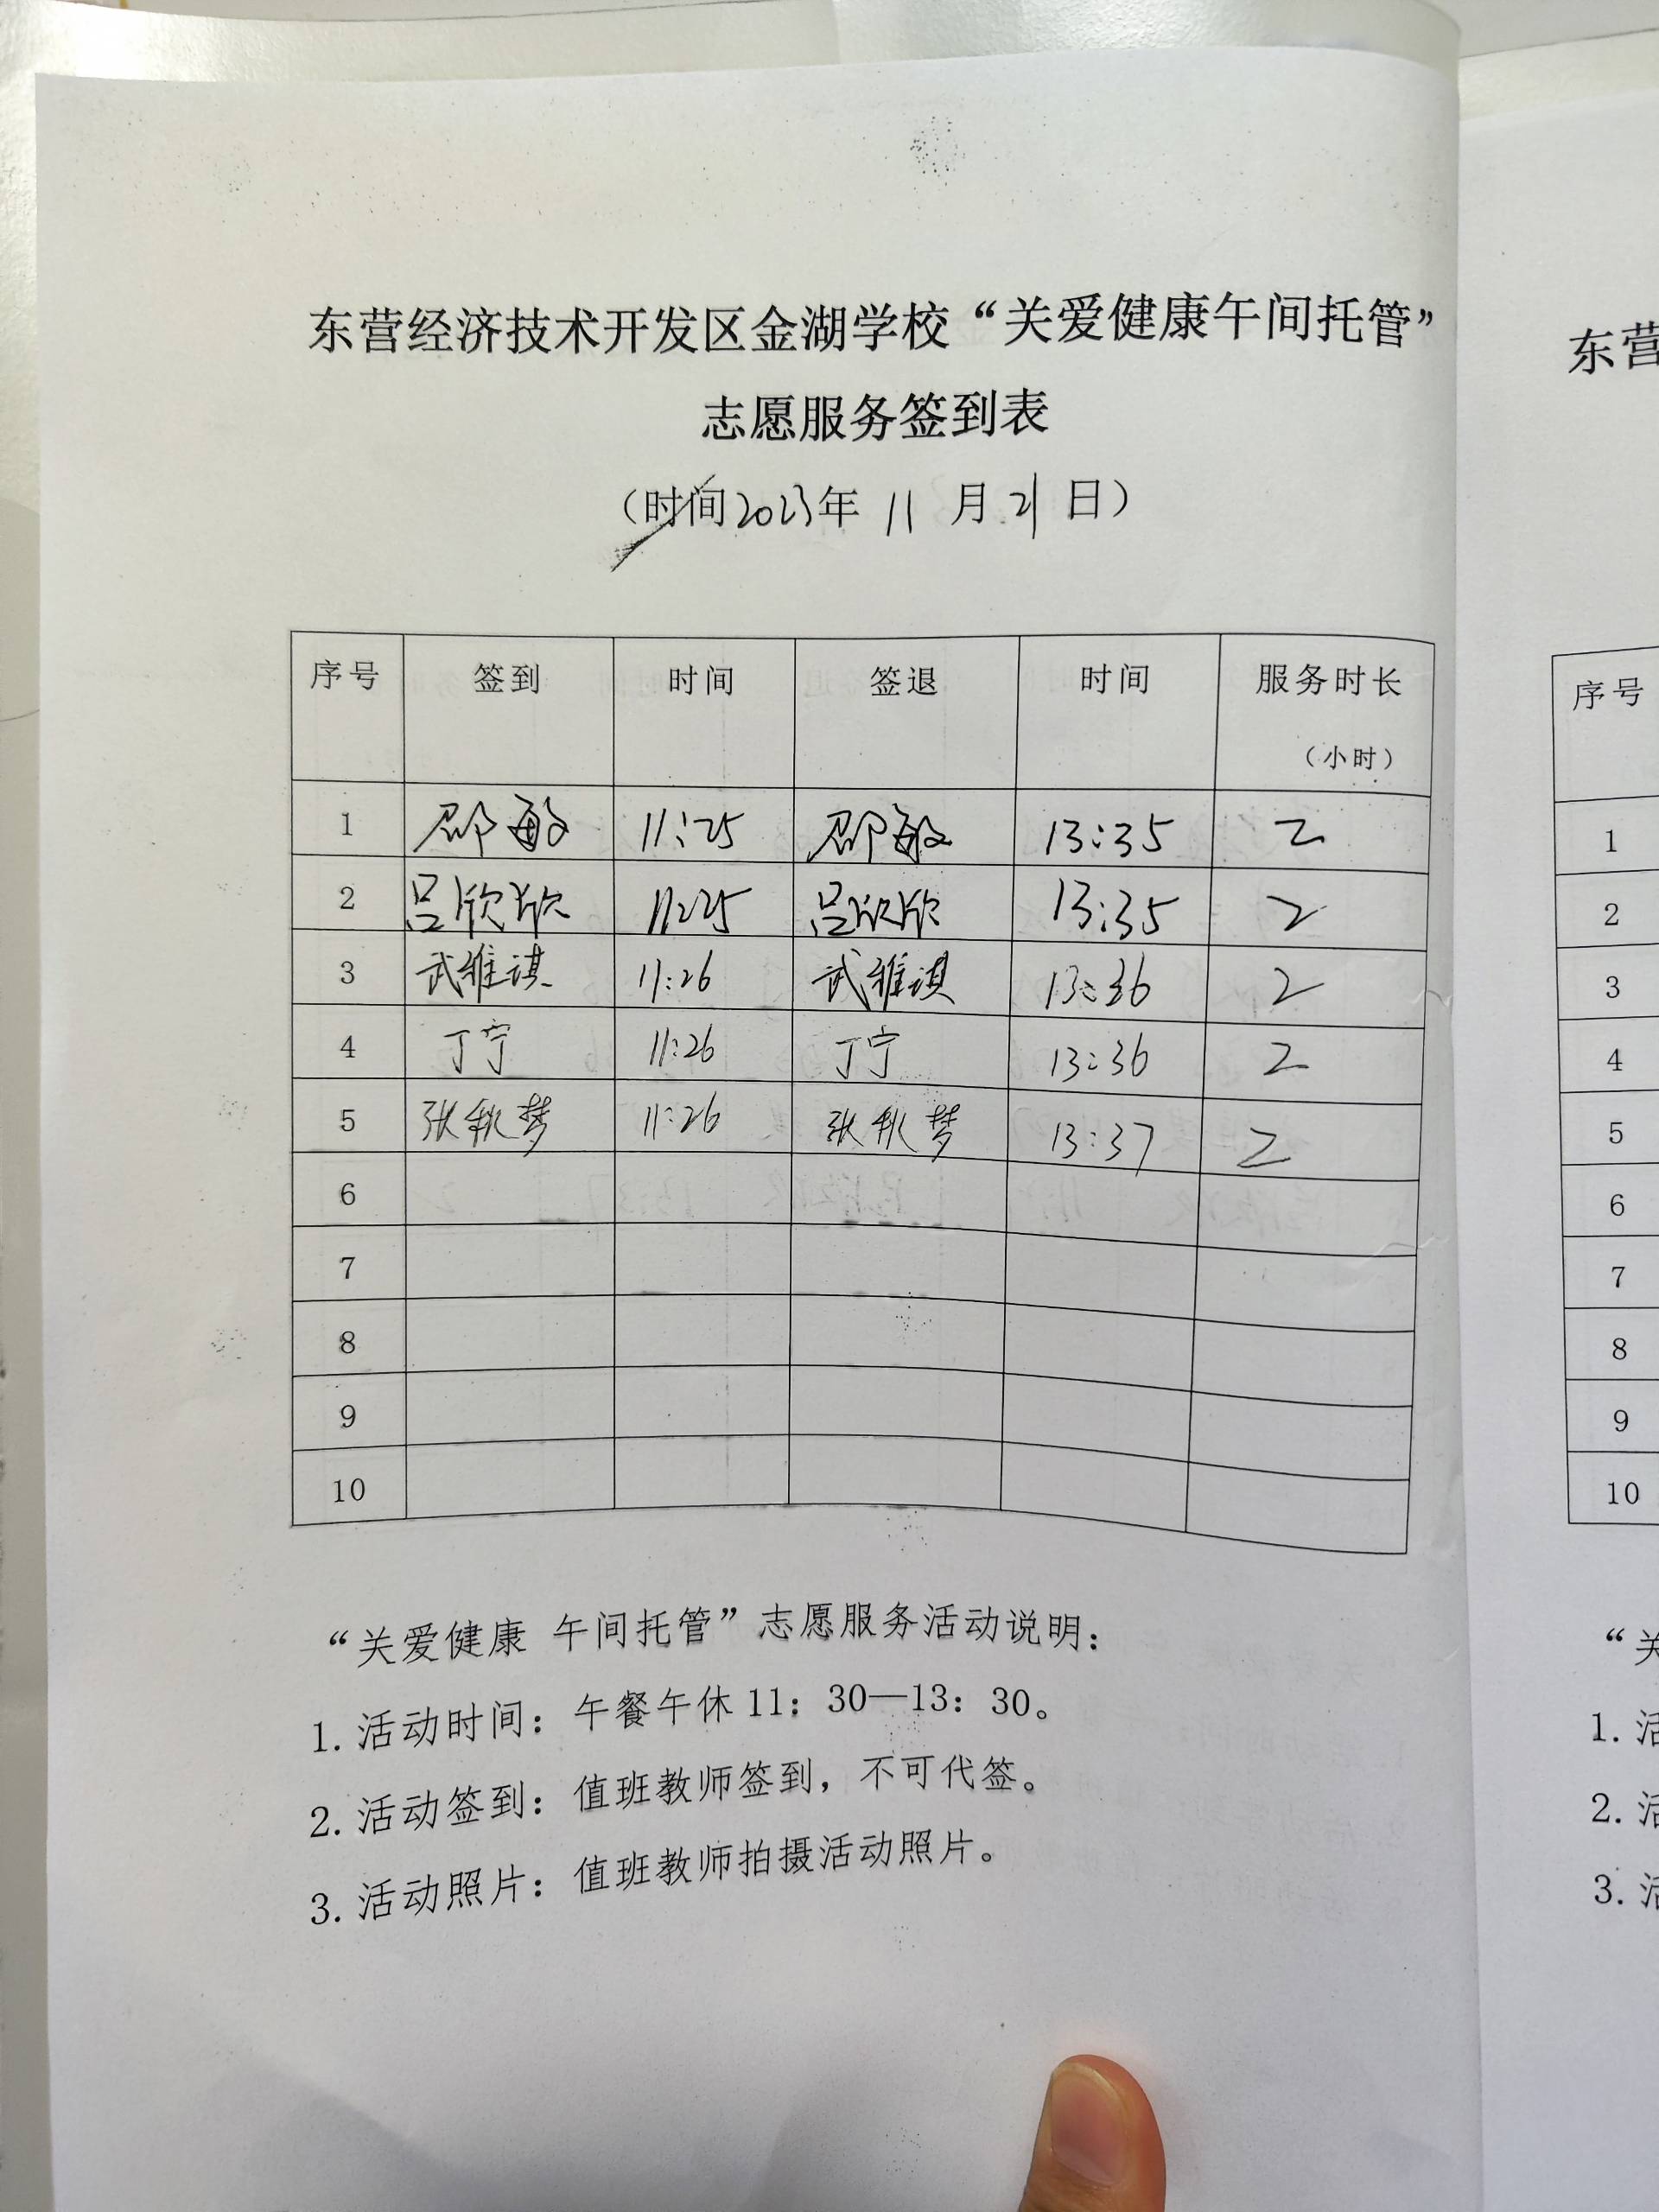 东营经济技术开发区金湖学校“关爱健康午间托管”
志愿服务签到表
（时间2023年 11 月 21 日）
序号 签到 时间 签退 时间 服务时长
（小时）
1 邵敏 11:25 邵敏 13:35 2
2 吕欣欣 11:25 吕欣欣 13:35 2
3 武维祺 11:26 武维祺 13:36 2
4 丁宁 11:26 丁宁 13:36 2
5 张秋梦 11:26 张秋梦 13:37 2
6
7
8
9
10
“关爱健康 午间托管”志愿服务活动说明：
1. 活动时间：午餐午休 11：30—13：30。
2. 活动签到：值班教师签到，不可代签。
3. 活动照片：值班教师拍摄活动照片。
东营
序号
1
2
3
4
5
6
7
8
9
10
“关
1. 活
2. 活
3. 活